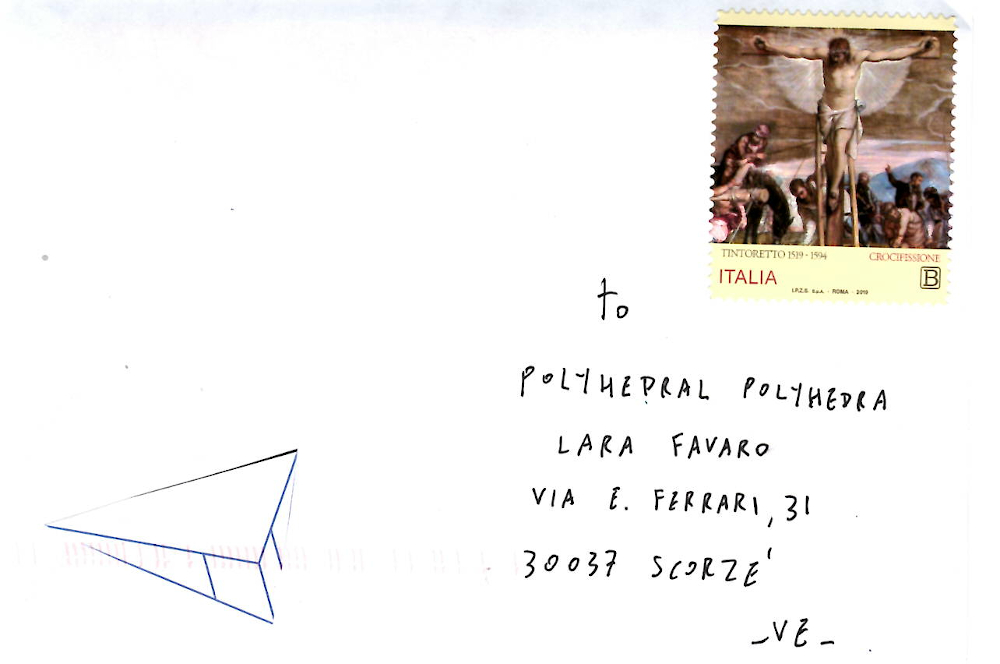 TINTORETTO 1519 - 1594 CROCIFISSIONE
ITALIA B
I.P.Z.S. S.p.A. - ROMA - 2019
to
POLYHEDRAL POLYHEDRA
LARA FAVARO
VIA E. FERRARI, 31
30037 SCORZE'
-VE-